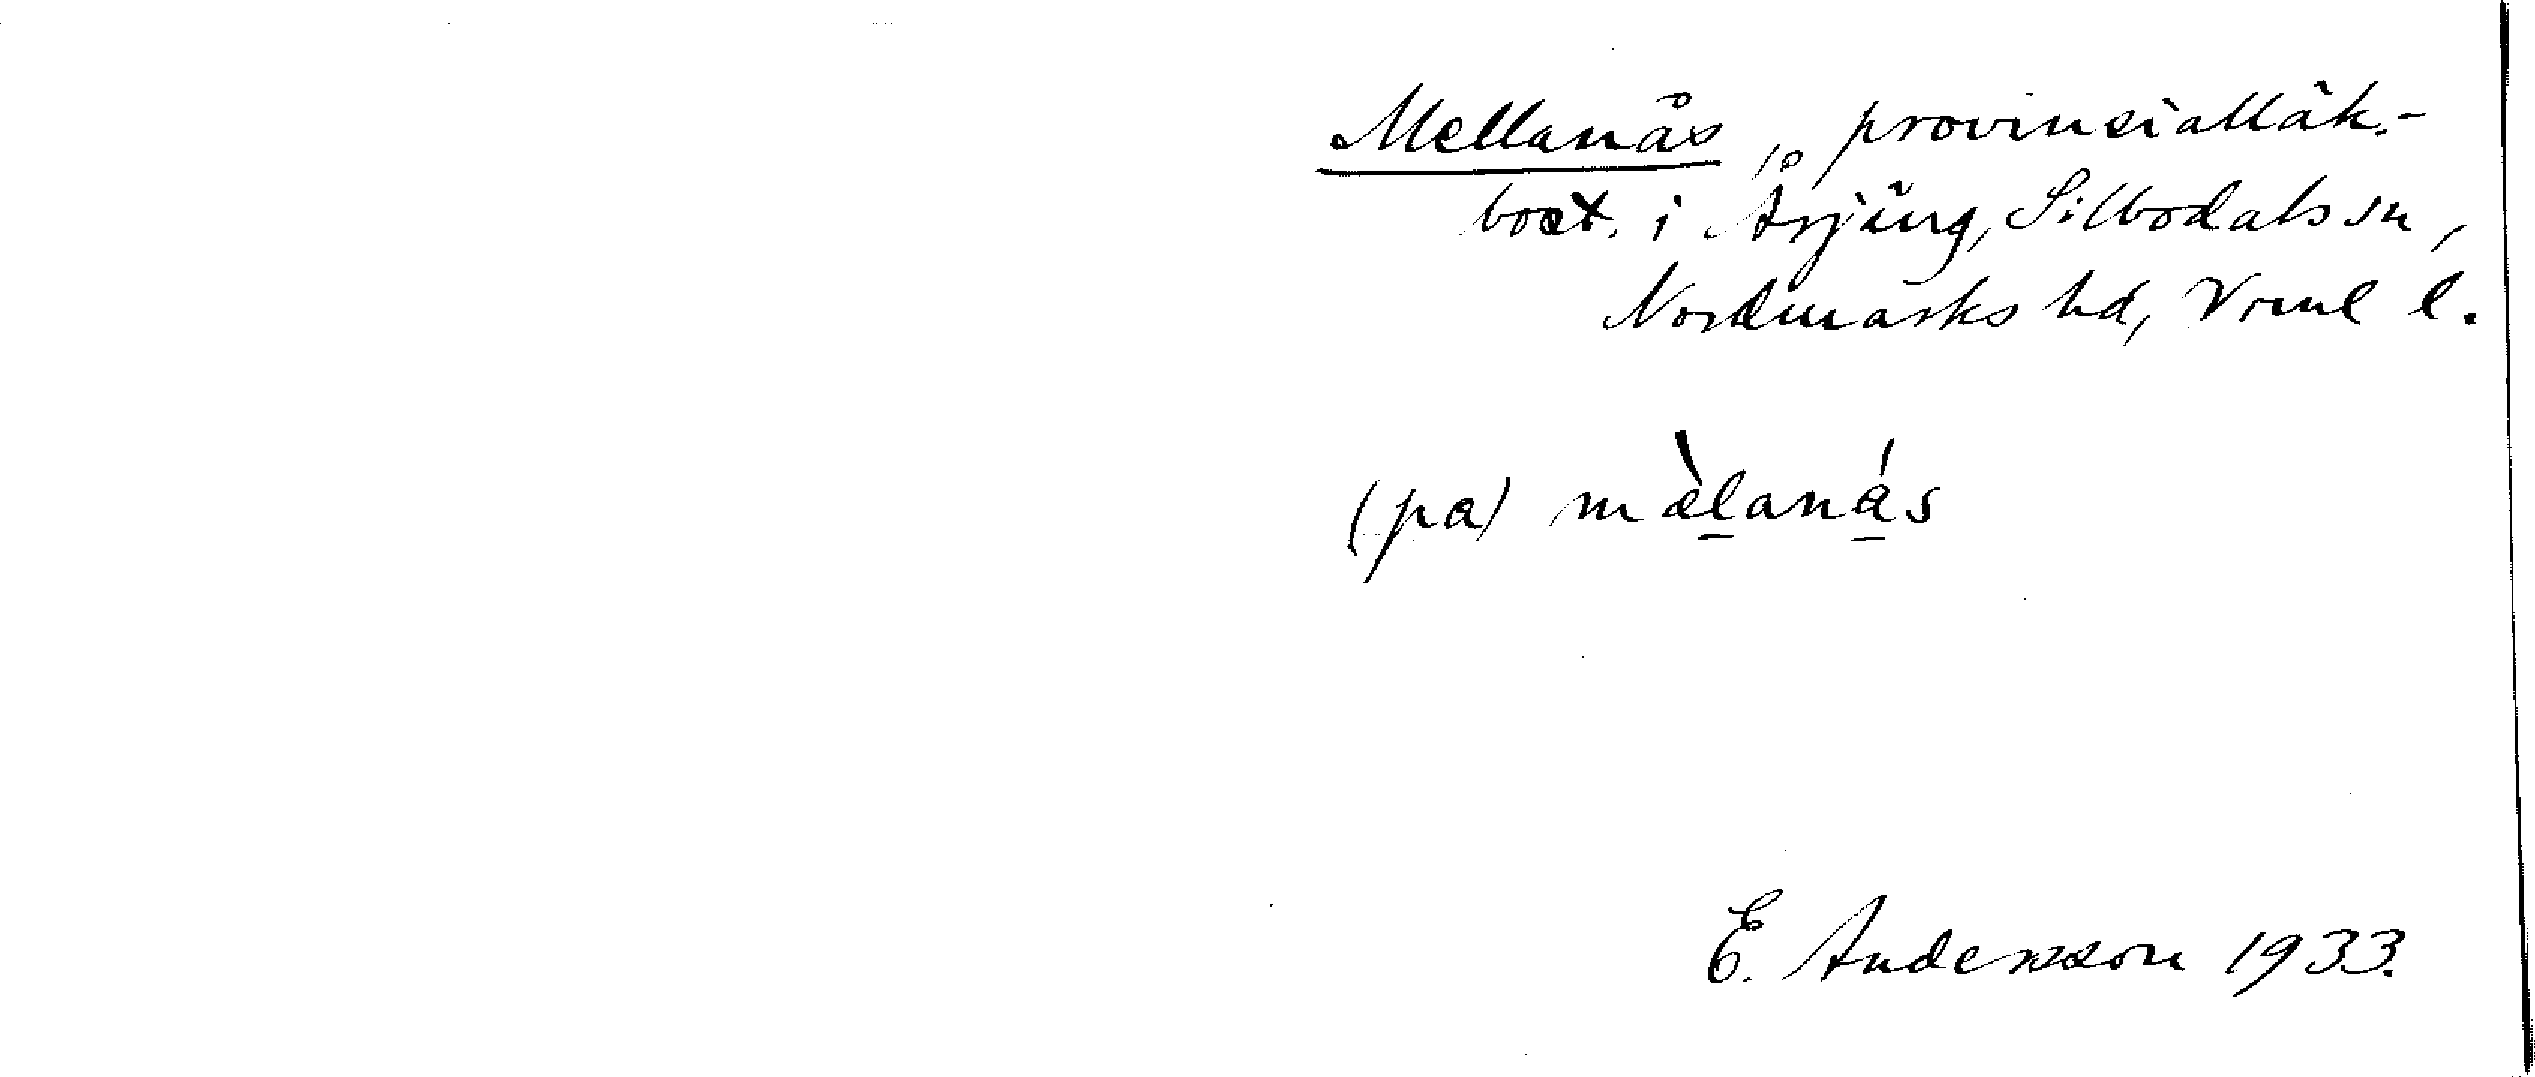 Mellanås, provinsialläk.-
bost. i Årjäng, Silbodals sn,
Nordmarks hd, Vrml l.
(pa) mèlanás
E. Andersson 1933.